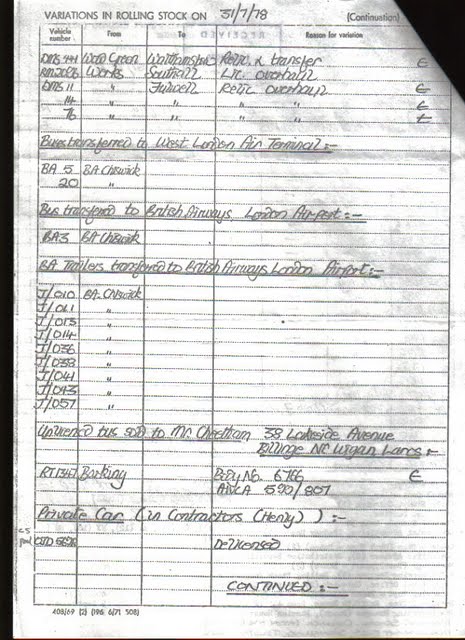 VARIATIONS IN ROLLING STOCK ON 31/7/78 (Continuation)
RECEIVED
Vehicle number From To Reason for variation
DMS 441 Wood Green Walthamstow Relic. & transfer €
RM2086 Works Southall Lic. overhaul
DMS 11 " Fulwell Relic overhaul €
14 " " " €
76 " " " €
Buses transferred to West London Air Terminal:-
BA 5 BA Chiswick
20 "
Bus transferred to British Airways London Airport:-
BA3 BA Chiswick
BA Trailers transferred to British Airways London Airport:-
J/010 BA Chiswick
J/011 "
J/013 "
J/014 "
J/036 "
J/038 "
J/041 "
J/043 "
J/057 "
Unlicenced bus sold to Mr. Cheetham 38 Lakeside Avenue
Billinge Nr Wigan Lancs:-
RT1347 Barking Body No. 6766 €
AVLA 590/807
Private Car (in Contractors (Henly) ) :-
Delicensed
CONTINUED:-
408/69 (2) (196 6/71 50B)